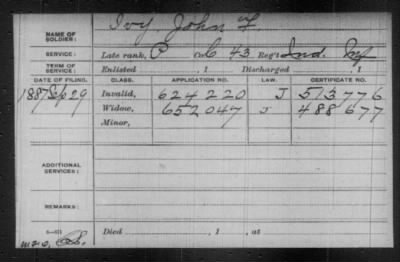 NAME OF SOLDIER: Ivy John F.
SERVICE: Late rank, P Co. C 43, Reg't Ind. Inf
TERM OF SERVICE: Enlisted , 1 Discharged , 1
DATE OF FILING. CLASS. APPLICATION NO. LAW. CERTIFICATE NO.
1887 Sep 29 Invalid, 624220 J 513776
Widow, 652047 J 488677
Minor,
ADDITIONAL SERVICES:
REMARKS:
Died , 1 , at